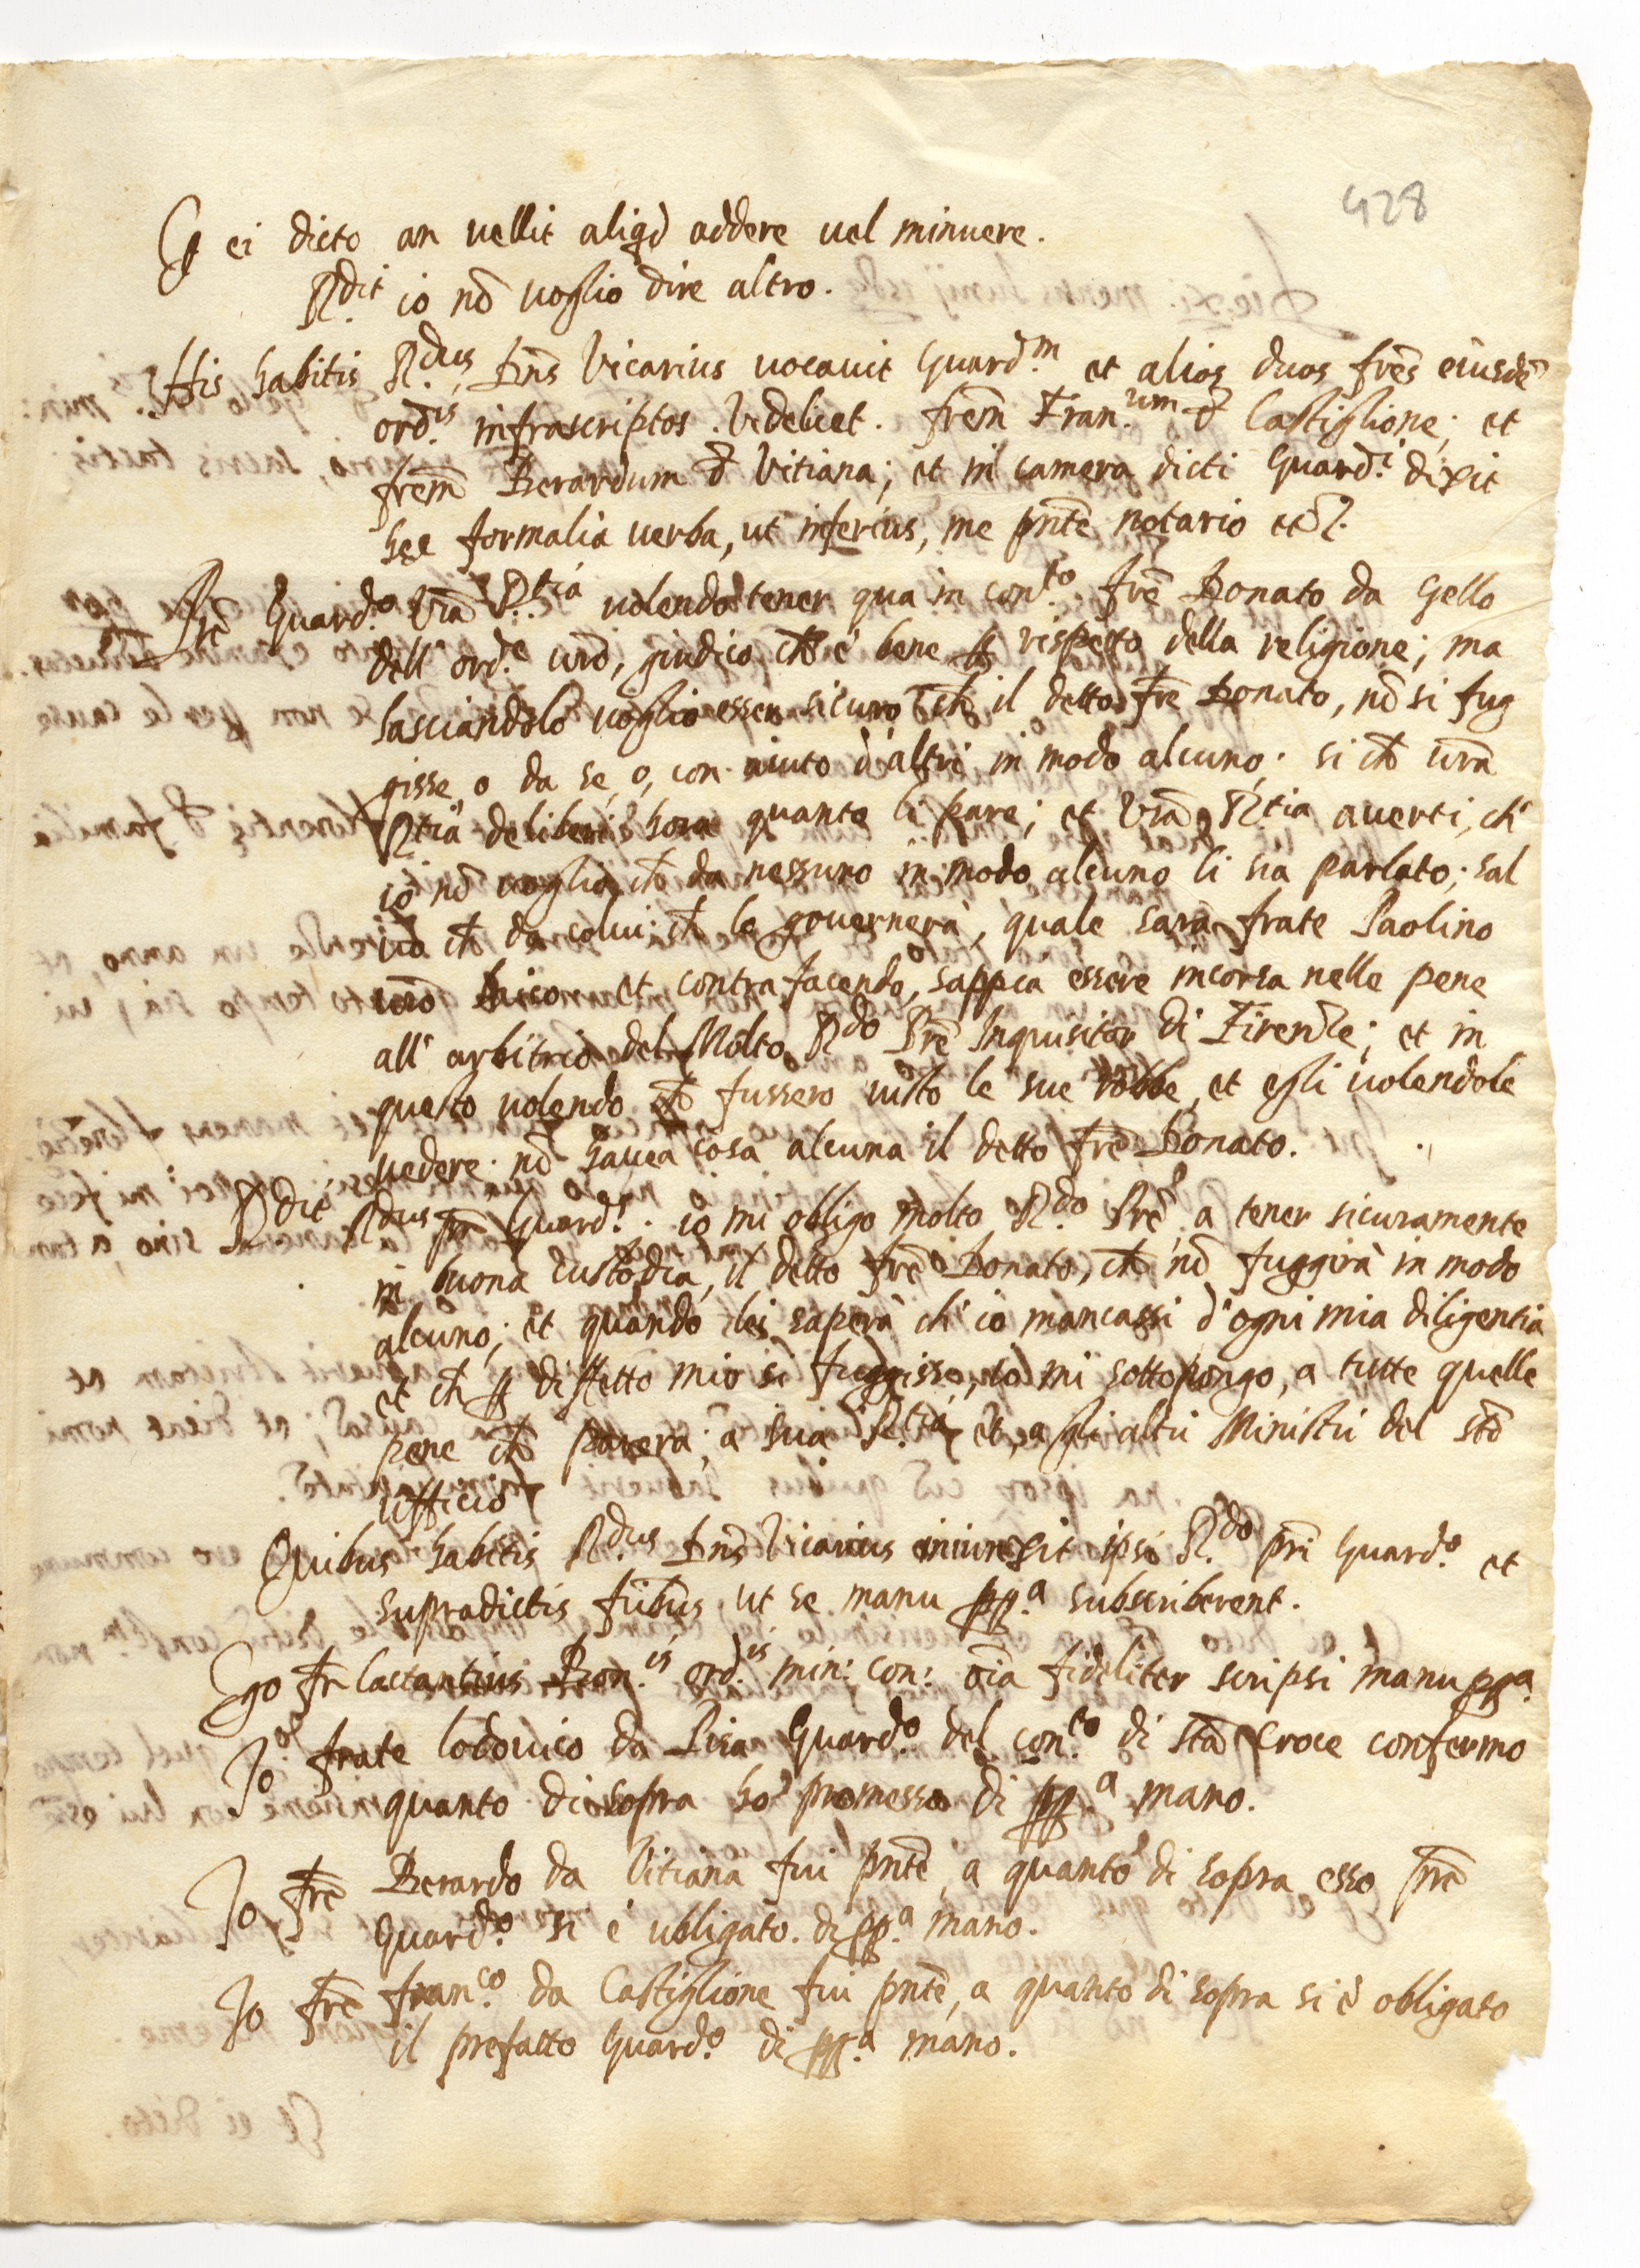 428
Et ei dicto an vellit aliqd addere uel minuere.
R.dit io nō uoglio dire altro.
His habitis R.dus Dn̄s Vicarius uocauit Guard.m et alios duos frēs eiusdē
ord.is infrascriptos. Videlicet. frem̄ Fran.um đ Castiglione; et
frem̄ Berardum đ Vitiana; et in camera dicti Guard.i dixit
hec formalia uerba, ut inferius, me pn̄te notario et
Prē Guard.o Vrā R.tia uolendo tener qua in con.to frē Donato da Gello
dell' ord.e urō, giudico ch̄ è bene ꝑ rispetto della religione; ma
lasciandolo uoglio esser sicuro ch̄ il detto frē Donato, nō si fug
gisse o da se, o, con aiuto d'altri in modo alcuno; si ch̄ urā
R.tia deliberi hora quanto li pare; et Vrā R.tia auerti, ch'
io nō uoglio, ch̄ da nessuno in modo alcuno li sia parlato; sal
uo ch̄ da colui ch̄ lo gouernerà, quale sarà frate Paolino
urō laico et contra facendo, sappia essere incorsa nelle pene
all' arbitrio del Molto R.do Prē Inquisitor di Firenze; et in
questo uolendo ch̄ fussero uisto le sue robbe, et egli uolendole
uedere. nō hauea cosa alcuna il detto frē Donato.
R.dit R.dus pr̄ Guard.s. io mi obligo molto R.do Prē, a tener sicuramente
in buona custodia, il detto frē Donato, ch̄ nō fuggirà in modo
alcuno; et quando lei saperà ch' io mancassi d'ogni mia diligentia
et ch̄ ꝑ diffetto mio si fuggisse, io mi sottopongo, a tutte quelle
pene ch̄ parera; a sua R.tia et, a gli altri Ministri del stō
ufficio
Quibus habitis R.dus Dn̄s Vicarius iniunxit ipsi R.do pri Guard.o et
supradictis fribus ut se manu ꝓp.a subscriberent.
Ego fr̄ Lactantius Bon.is ord.is min: con: oīa fideliter scripsi manu ꝓp.a
Io frate Lodouico da Pisa Guard.o del con.to di stā Croce confermo
quanto di sopra ho promesso di ꝓp.a mano.
Io frē Berardo da Vitiana fui pn̄te, a quanto di sopra esso prē
Guard.o si è ubligato. di ꝓp.a mano.
Io frē fran.co da Castiglione fui pn̄te, a quanto di sopra si è obligato
il prefatto Guard.o di ꝓp.a mano.